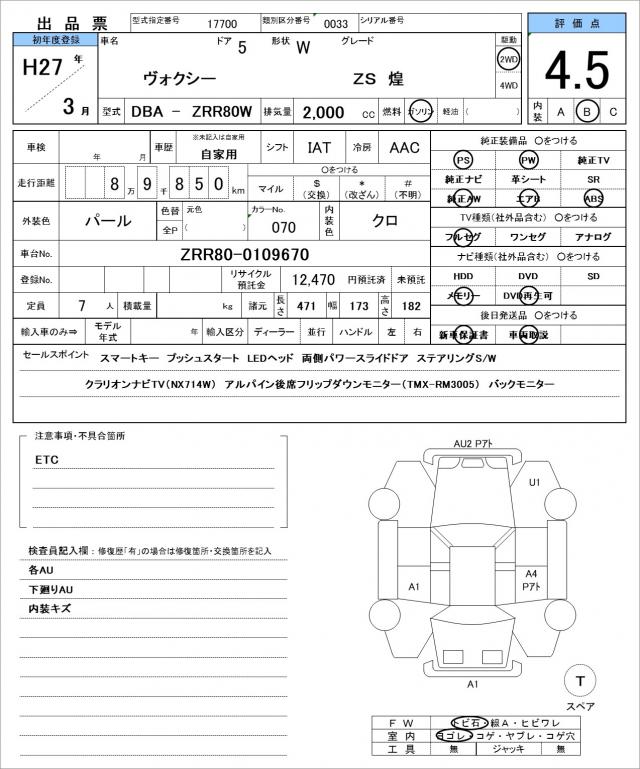 出品票 型式指定番号 17700 類別区分番号 0033 シリアル番号
評価点
初年度登録 車名 ドア 5 形状 W グレード 駆動
H27 年 ヴォクシー ZS 煌 2WD 4.5
4WD
3 月 型式 DBA － ZRR80W 排気量 2,000 cc 燃料 ガソリン 軽油 ( ) 内装 A B C
車検 年 月 車歴 ※未記入は自家用 自家用 シフト IAT 冷房 AAC
純正装備品 〇をつける
PS PW 純正TV
走行距離 8 万 9 千 8 5 0 km 〇をつける
マイル $ (交換) * (改ざん) # (不明)
純正ナビ 革シート SR
純正AW エアB ABS
外装色 パール 色替 元色 全P ( ) カラーNo. 070 内装色 クロ
TV種類(社外品含む) 〇をつける
フルセグ ワンセグ アナログ
車台No. ZRR80-0109670
ナビ種類(社外品含む) 〇をつける
登録No. リサイクル預託金 12,470 円預託済 未預託
HDD DVD SD
メモリー DVD再生可
定員 7 人 積載量 kg 諸元 長さ 471 幅 173 高さ 182
後日発送品 〇をつける
輸入車のみ⇒ モデル年式 年 輸入区分 ディーラー 並行 ハンドル 左 右
新車保証書 車両取説
セールスポイント スマートキー プッシュスタート LEDヘッド 両側パワースライドドア ステアリングS/W
クラリオンナビTV(NX714W) アルパイン後席フリップダウンモニター(TMX-RM3005) バックモニター
注意事項・不具合箇所
ETC
検査員記入欄：修復歴「有」の場合は修復箇所・交換箇所を記入
各AU
下廻りAU
内装キズ
AU2 Pアト
U1
A1
A4
Pアト
A1
T
スペア
FW トビ石・線A・ヒビワレ
室内 ヨゴレ・コゲ・ヤブレ・コゲ穴
工具 無 ジャッキ 無